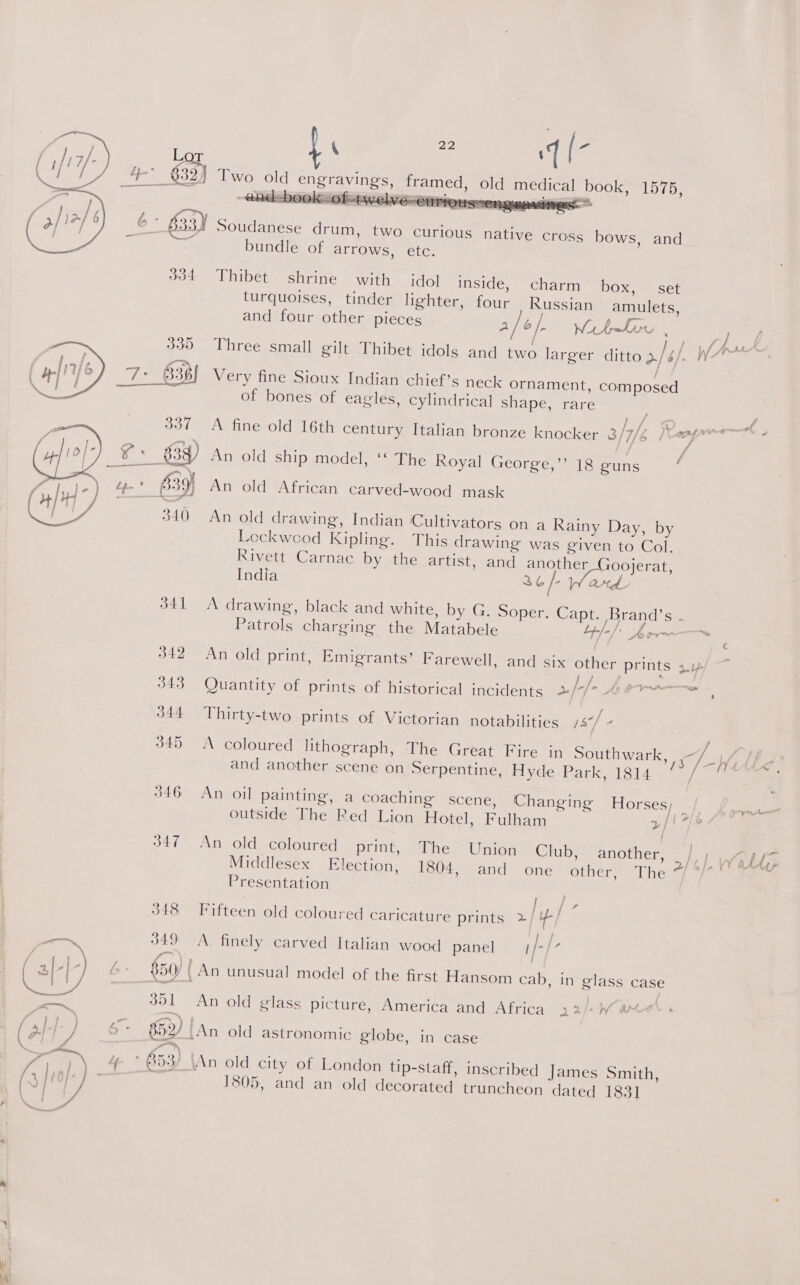 22
Lot
4- 332 Two old engravings, framed, old medical book, 1575,
and book of twelve curious engravings
6- 333 Soudanese drum, two curious native cross bows, and
bundle of arrows, etc.
334 Thibet shrine with idol inside, charm box, set
turquoises, tinder lighter, four Russian amulets,
and four other pieces 2/6/-
335 Three small gilt Thibet idols and two larger ditto 2/6/-
4/17/6 7- 336 Very fine Sioux Indian chief's neck ornament, composed
of bones of eagles, cylindrical shape, rare
337 A fine old 16th century Italian bronze knocker 3/7/6
4/10/- 8- 338 An old ship model, “ The Royal George,” 18 guns
4/4/- 4- 339 An old African carved-wood mask
340 An old drawing, Indian Cultivators on a Rainy Day, by
Lockwood Kipling. This drawing was given to Col.
Rivett Carnac by the artist, and another Goojerat,
India 36/- Ward
341 A drawing, black and white, by G. Soper. Capt. Brand's
Patrols charging the Matabele 4/-/-
342 An old print, Emigrants' Farewell, and six other prints
343 Quantity of prints of historical incidents 2/-/-
344 Thirty-two prints of Victorian notabilities 15/-
345 A coloured lithograph, The Great Fire in Southwark,
and another scene on Serpentine, Hyde Park, 1814 15/-
346 An oil painting, a coaching scene, Changing Horses,
outside The Red Lion Hotel, Fulham 2/12/6
347 An old coloured print, The Union Club, another,
Middlesex Election, 1804, and one other, The 2/6/-
Presentation
348 Fifteen old coloured caricature prints 2/4/-
349 A finely carved Italian wood panel 1/-/-
3/-/- 6- 350 An unusual model of the first Hansom cab, in glass case
351 An old glass picture, America and Africa 22/- Ward
2/-/- 5- 352 An old astronomic globe, in case
3/10/- 4- 353 An old city of London tip-staff, inscribed James Smith,
1805, and an old decorated truncheon dated 1831